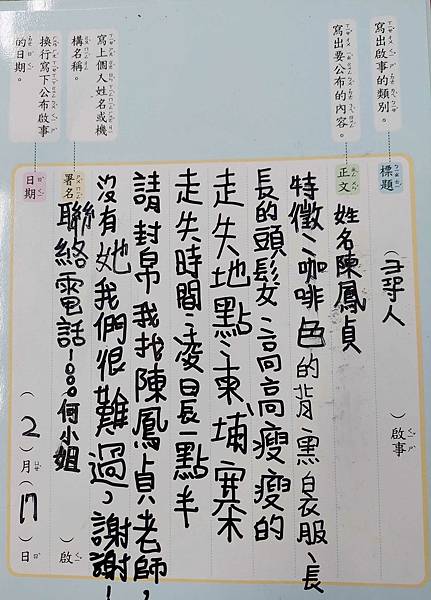 寫出啟事的類別。
寫出要公布的內容。
寫上個人姓名或機
構名稱。
換行寫下公布啟事
的日期。
標題
（尋人）啟事
正文
姓名陳鳳貞
特徵：咖啡色的背、黑白衣服、長
長的頭髮、高高瘦瘦的
走失地點：柬埔寨
走失時間：凌晨一點半
請幫我找陳鳳貞老師，
沒有她我們很難過，謝謝！
署名
聯絡電話 何小姐 啟
日期
（2）月（17）日